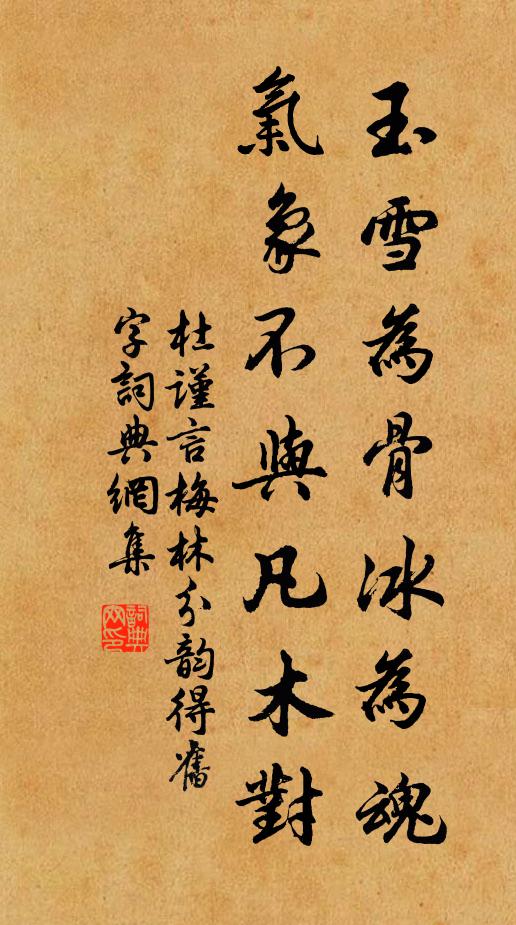 玉雪為骨冰為魂
氣象不與凡木對
杜謹言梅林分韻得舊
字詞典網集
詞典網印